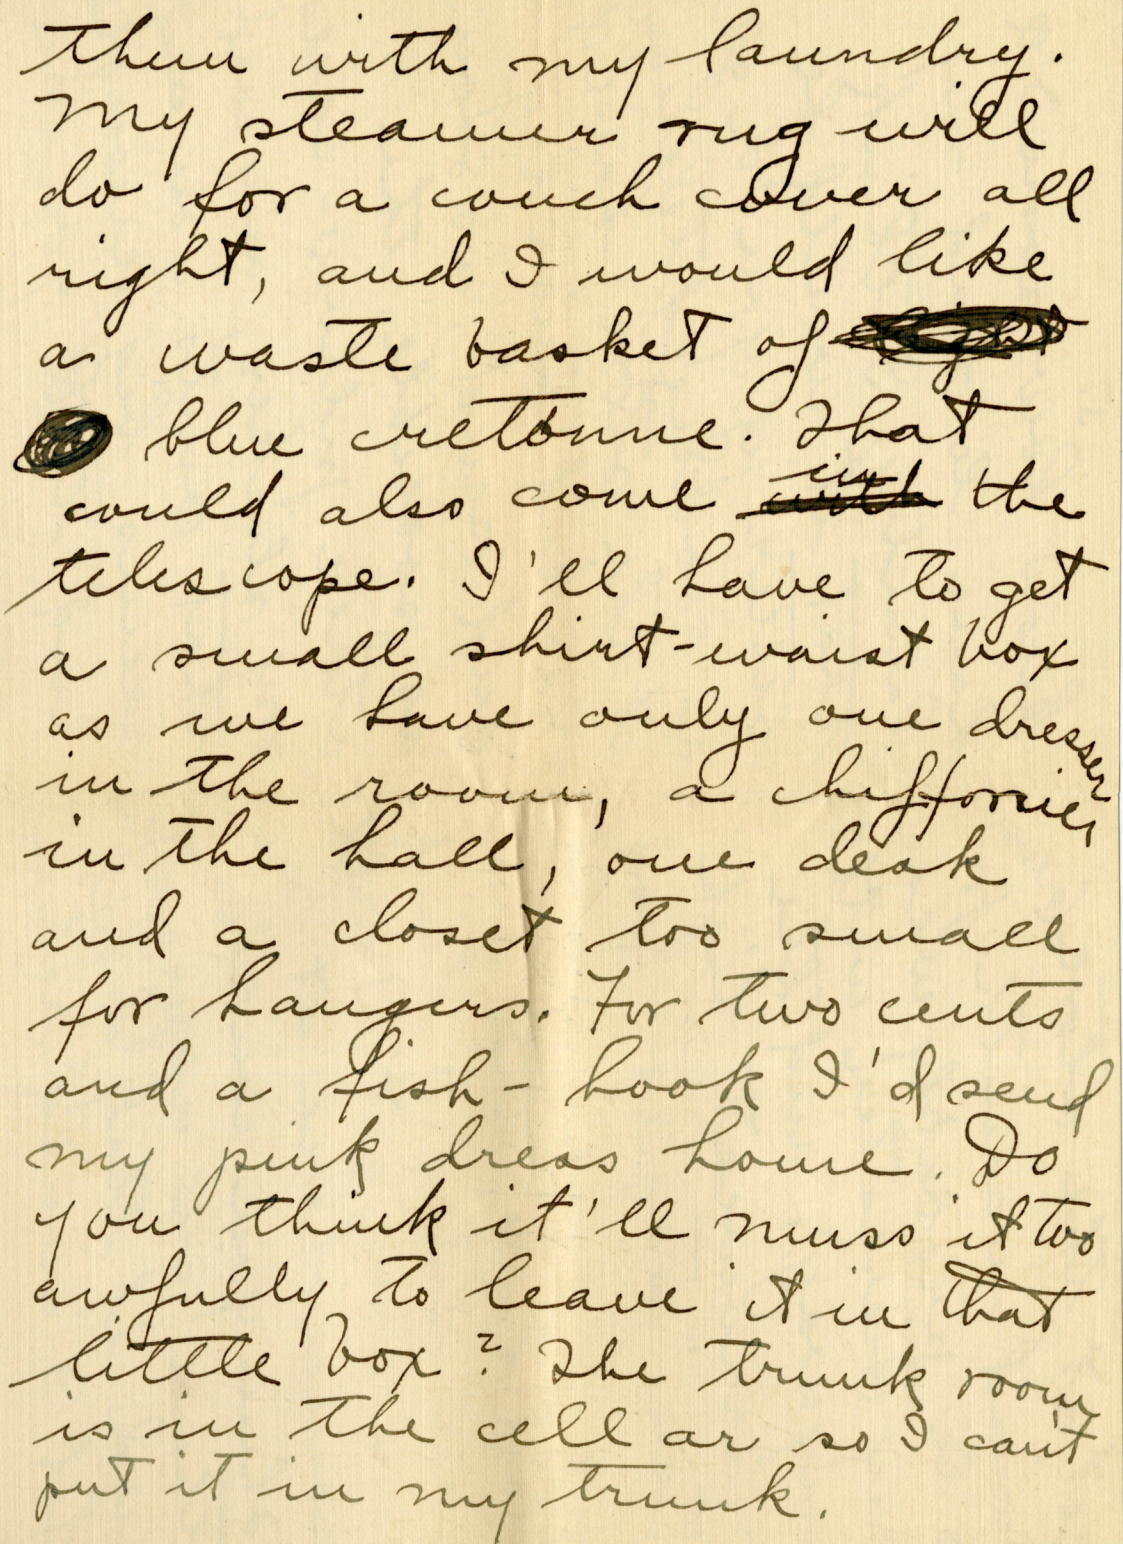 them with my laundry.
My steamer rug will
do for a couch cover all
right, and I would like
a waste basket of
blue cretonne. That
could also come in the
telescope. I'll have to get
a small shirt-waist box
as we have only one dresser
in the room, a chiffonier
in the hall, one desk
and a closet too small
for hangers. For two cents
and a fish-hook I'd send
my pink dress home. Do
you think it'll muss it too
awfully to leave it in that
little box? The trunk room
is in the cellar so I can't
put it in my trunk.